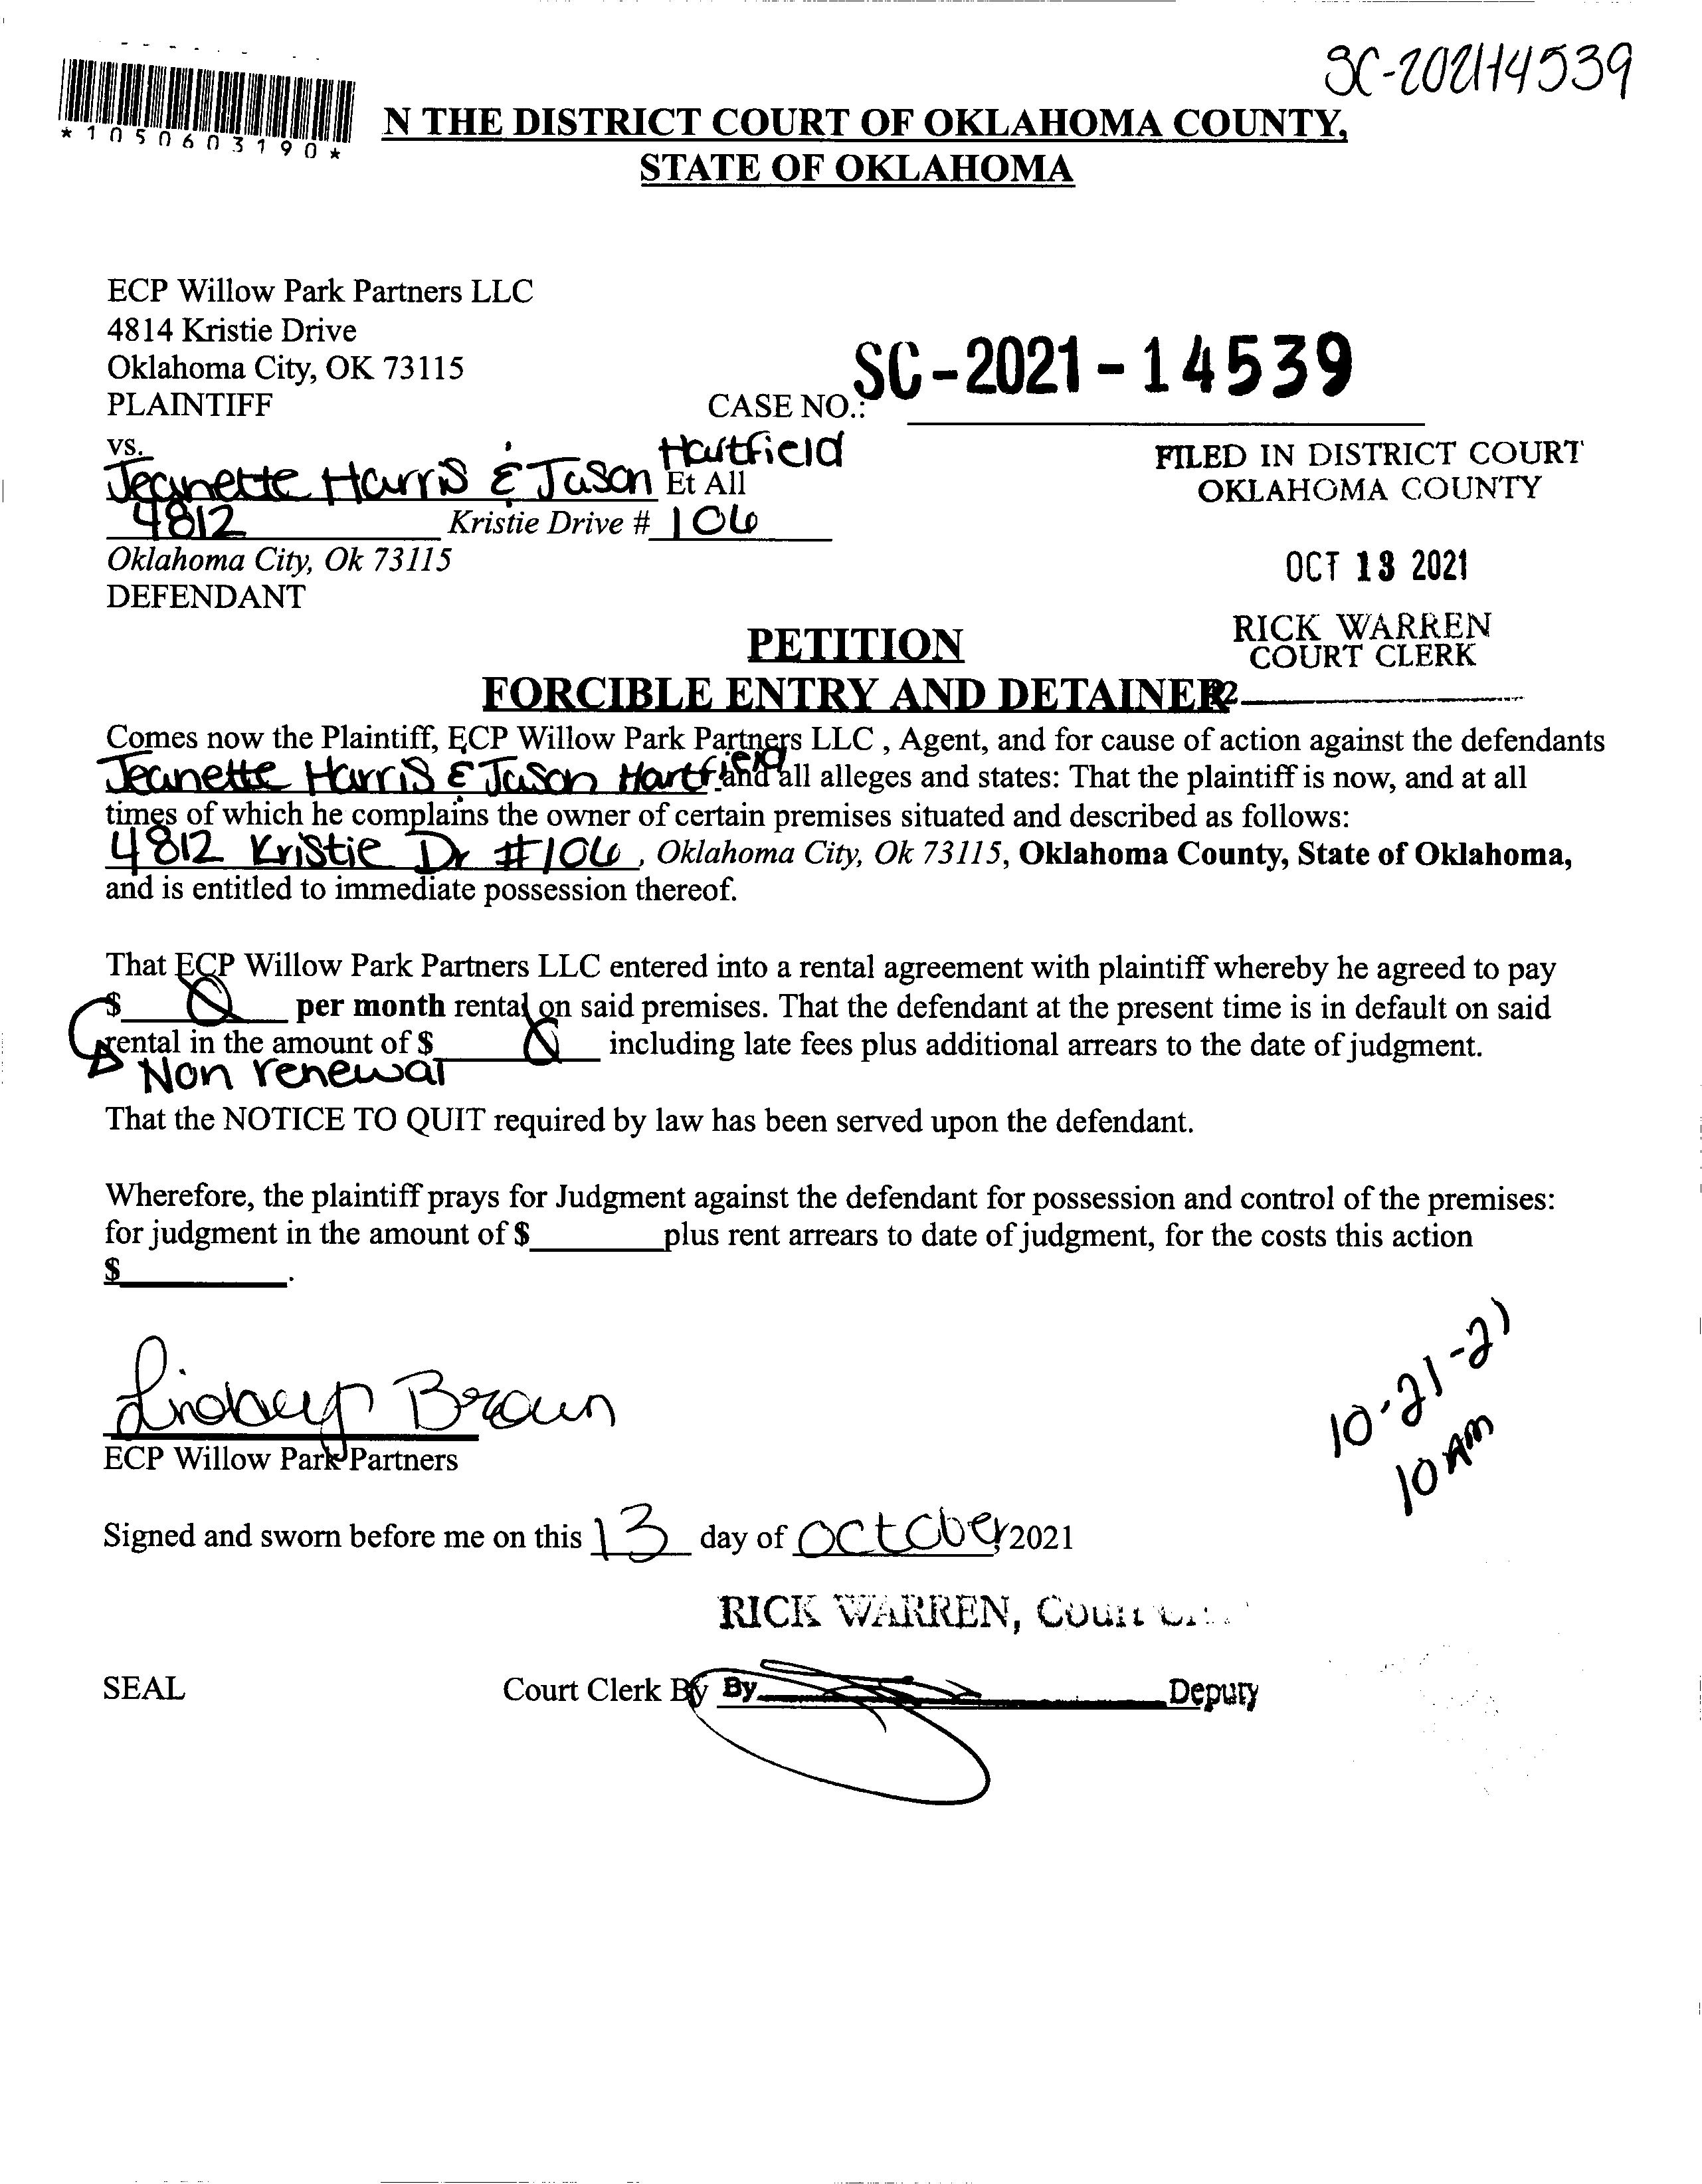 SC-2021-14539
*1050603190*
N THE DISTRICT COURT OF OKLAHOMA COUNTY,
STATE OF OKLAHOMA
ECP Willow Park Partners LLC
4814 Kristie Drive
Oklahoma City, OK 73115
PLAINTIFF
CASE NO.: SC-2021-14539
vs.
Jeanette Harris & Jason Hartfield Et All
4812 Kristie Drive # 106
Oklahoma City, Ok 73115
DEFENDANT
FILED IN DISTRICT COURT
OKLAHOMA COUNTY
OCT 13 2021
RICK WARREN
COURT CLERK
PETITION
FORCIBLE ENTRY AND DETAINER
Comes now the Plaintiff, ECP Willow Park Partners LLC , Agent, and for cause of action against the defendants
Jeanette Harris & Jason Hartfield and all alleges and states: That the plaintiff is now, and at all
times of which he complains the owner of certain premises situated and described as follows:
4812 Kristie Dr #106, Oklahoma City, Ok 73115, Oklahoma County, State of Oklahoma,
and is entitled to immediate possession thereof.
That ECP Willow Park Partners LLC entered into a rental agreement with plaintiff whereby he agreed to pay
$ 0 per month rental on said premises. That the defendant at the present time is in default on said
rental in the amount of $ 0 including late fees plus additional arrears to the date of judgment.
Non renewal
That the NOTICE TO QUIT required by law has been served upon the defendant.
Wherefore, the plaintiff prays for Judgment against the defendant for possession and control of the premises:
for judgment in the amount of $ plus rent arrears to date of judgment, for the costs this action
$ .
Lindsey Brown
ECP Willow Park Partners
10-21-21
10 AM
Signed and sworn before me on this 13 day of October, 2021
RICK WARREN, Court
SEAL
Court Clerk By By Deputy